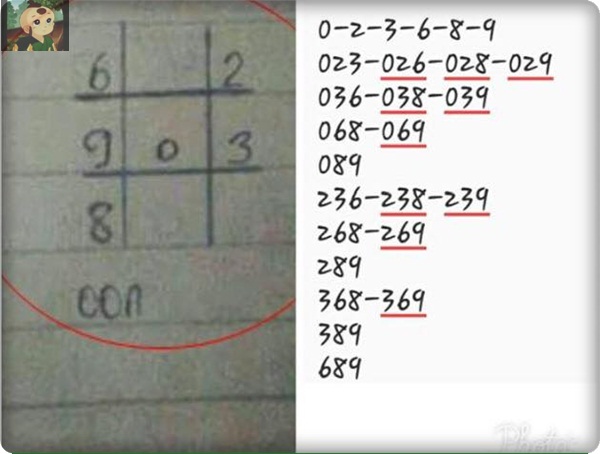 6 2
9 0 3
8
0-2-3-6-8-9
023-026-028-029
036-038-039
068-069
089
236-238-239
268-269
289
368-369
389
689